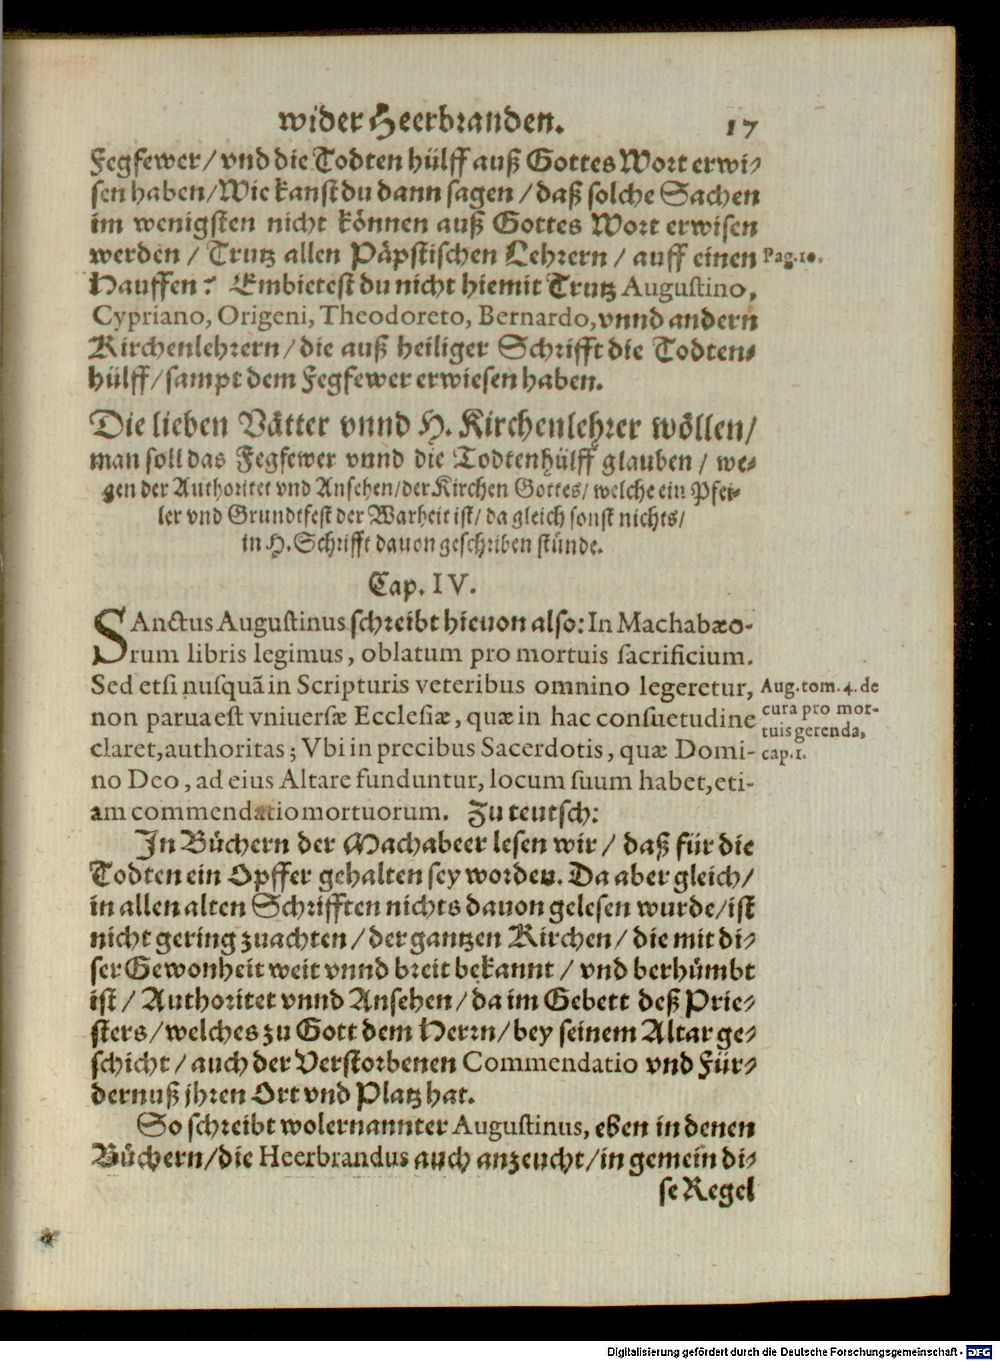 wider Heerbranden. 17
Fegfewer/vnd die Todten hülff auß Gottes Wort erwi⸗
sen haben/Wie kanst du dann sagen/daß solche Sachen
im wenigsten nicht können auß Gottes Wort erwisen
werden / Trutz allen Päpstischen Lehrern / auff einen
Pag. 10.
Hauffen? Embietest du nicht hiemit Trutz Augustino,
Cypriano, Origeni, Theodoreto, Bernardo, vnnd andern
Kirchenlehrern/die auß heiliger Schrifft die Todten⸗
hülff/sampt dem Fegfewer erwiesen haben.
Die lieben Vätter vnnd H. Kirchenlehrer wöllen/
man soll das Fegfewer vnnd die Todtenhülff glauben / we⸗
gen der Authoritet vnd Ansehen/der Kirchen Gottes/ welche ein Pfei⸗
ler vnd Grundtfest der Warheit ist/ da gleich sonst nichts/
in H. Schrifft dauon geschriben stünde.
Cap. IV.
SAnctus Augustinus schreibt hieuon also: In Machabæo-
rum libris legimus, oblatum pro mortuis sacrificium.
Sed etsi nusquā in Scripturis veteribus omnino legeretur,
non parua est vniuersæ Ecclesiæ, quæ in hac consuetudine
claret, authoritas; Vbi in precibus Sacerdotis, quæ Domi-
no Deo, ad eius Altare funduntur, locum suum habet, eti-
am commendatio mortuorum. Zu teutsch:
Aug. tom. 4. de
cura pro mor-
tuis gerenda,
cap. 1.
In Büchern der Machabeer lesen wir / daß für die
Todten ein Opffer gehalten sey worden. Da aber gleich/
in allen alten Schrifften nichts dauon gelesen wurde/ist
nicht gering zuachten/der gantzen Kirchen/die mit di⸗
ser Gewonheit weit vnnd breit bekannt / vnd berhümbt
ist/ Authoritet vnnd Ansehen/da im Gebett deß Prie⸗
sters/welches zu Gott dem Herrn/bey seinem Altar ge⸗
schicht/auch der Verstorbenen Commendatio vnd Für⸗
dernuß jhren Ort vnd Platz hat.
So schreibt wolernannter Augustinus, eben in denen
Büchern/die Heerbrandus auch anzeucht/in gemein di⸗
se Regel
Digitalisierung gefördert durch die Deutsche Forschungsgemeinschaft - DFG